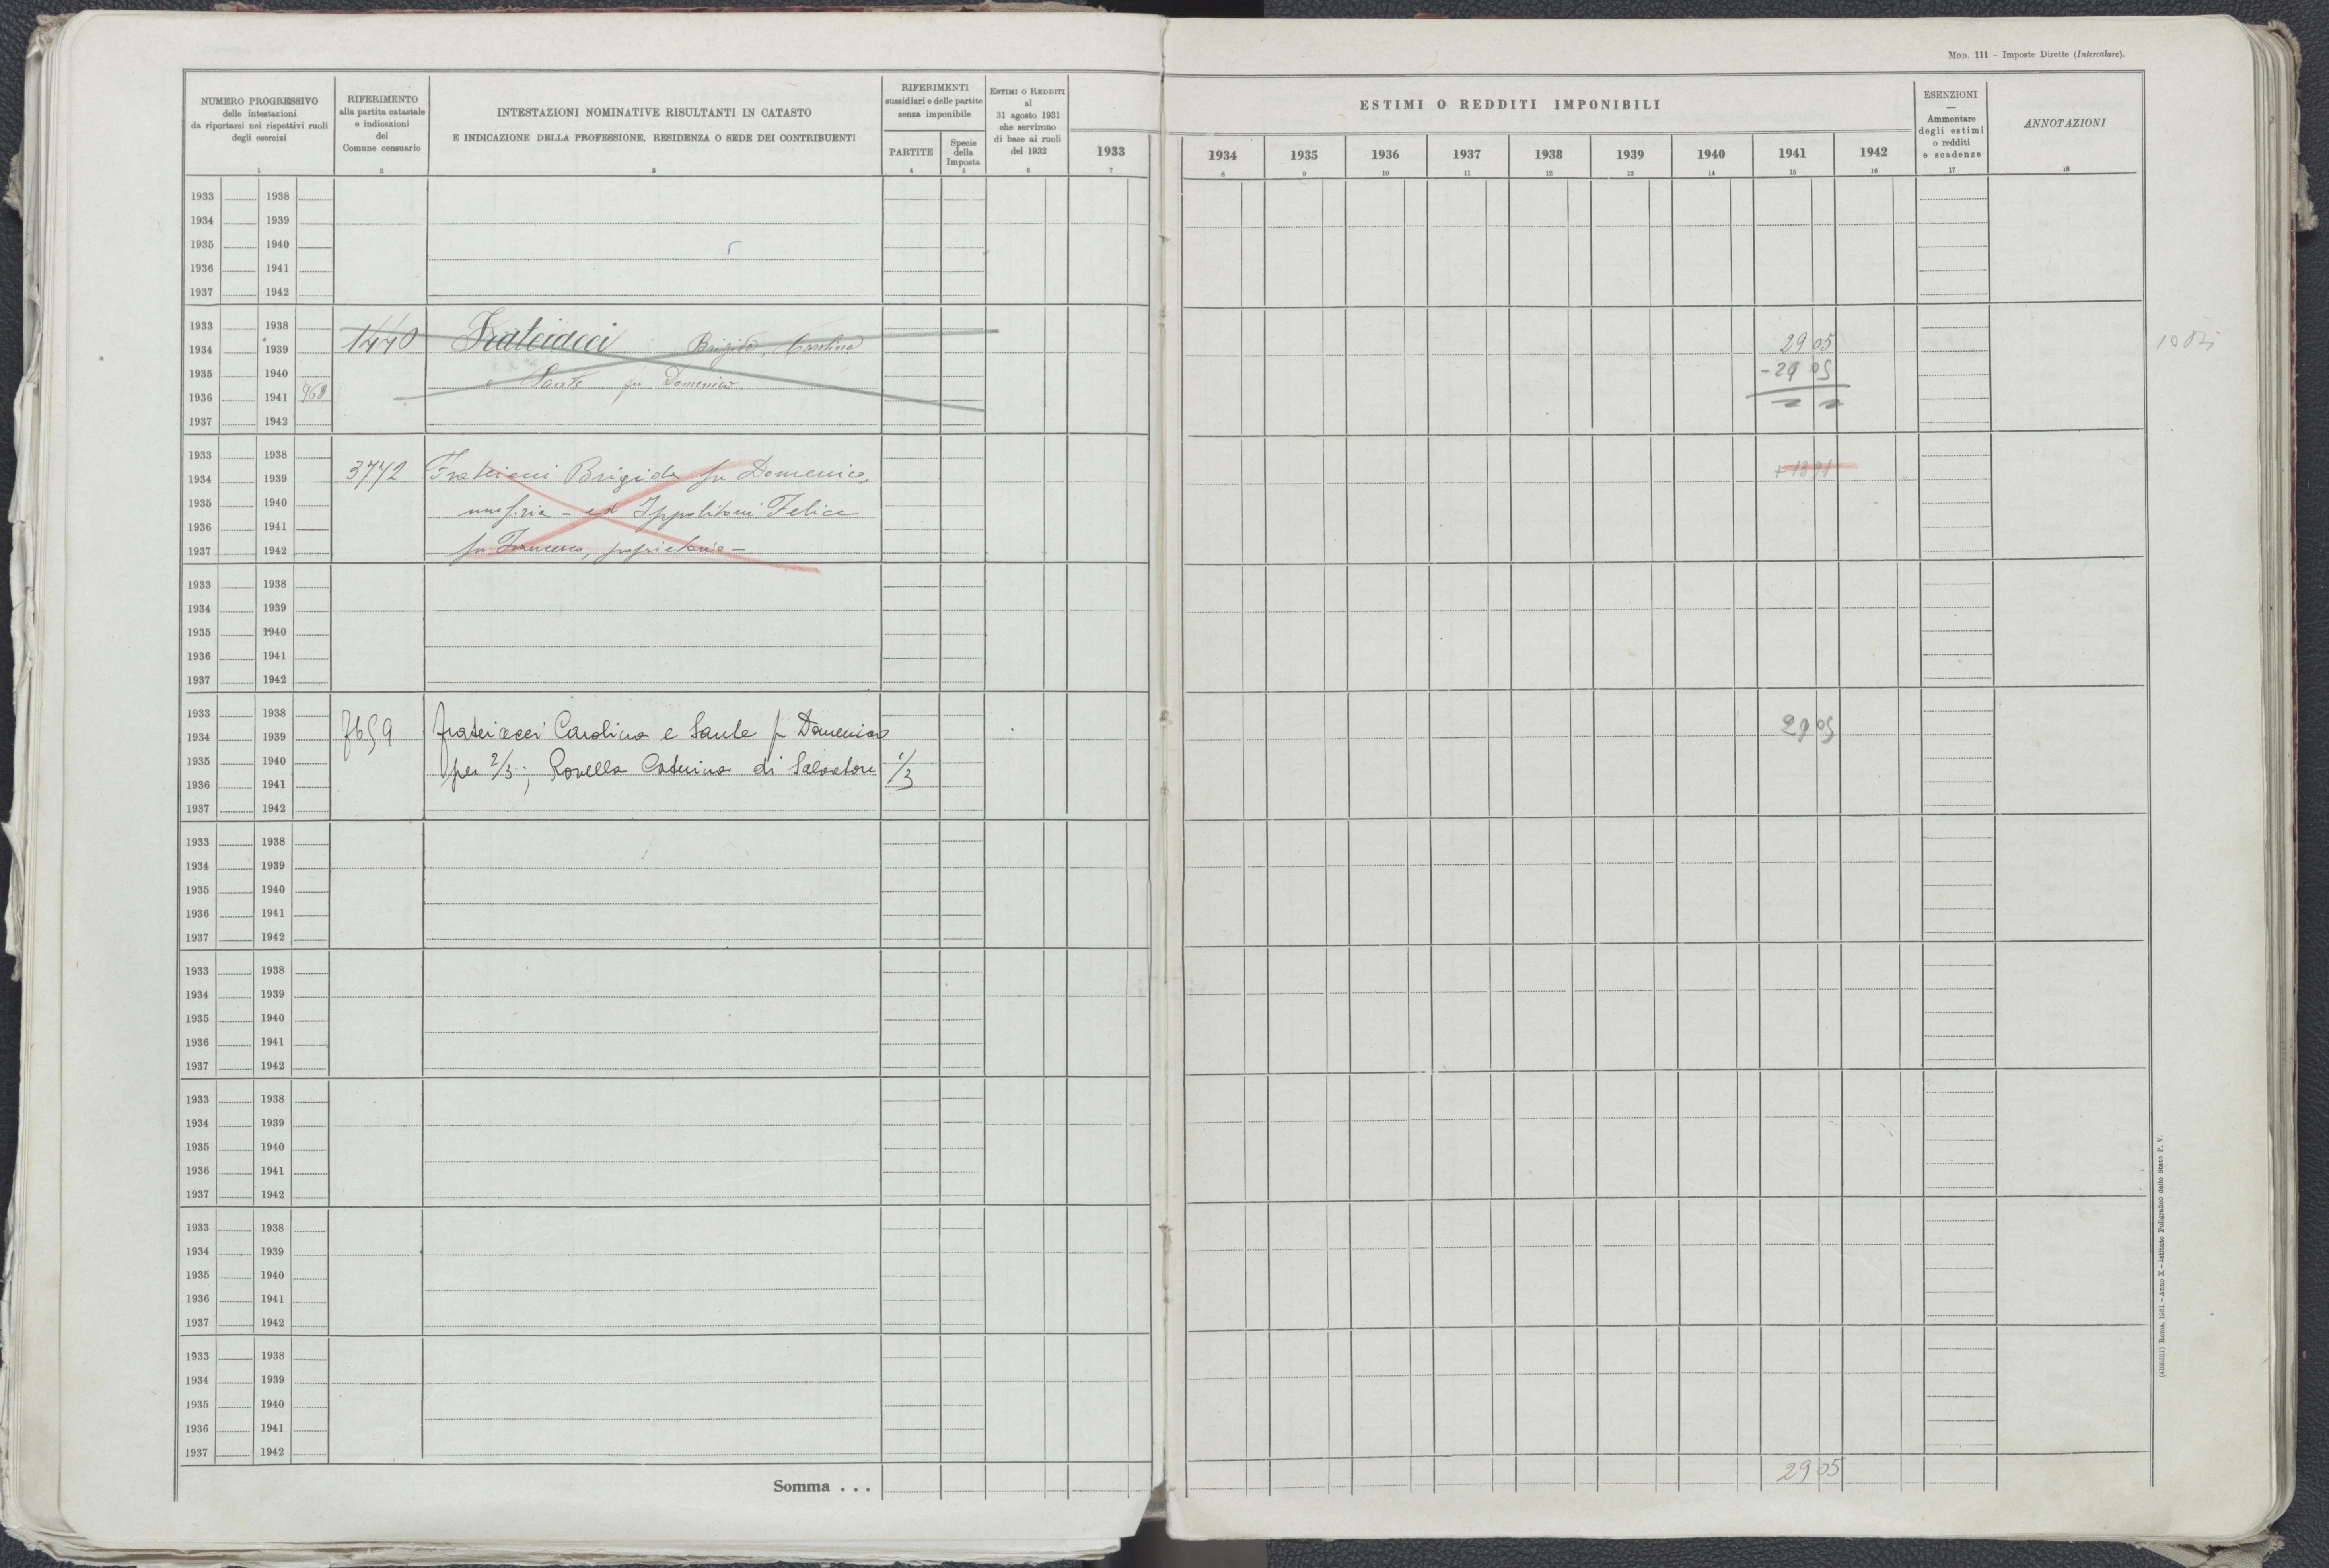 Mod. 111 - Imposte Dirette (Intercalare).
NUMERO PROGRESSIVO
delle intestazioni
da riportarsi nei rispettivi ruoli
degli esercizi
1
RIFERIMENTO
alla partita catastale
e indicazioni
del
Comune censuario
2
INTESTAZIONI NOMINATIVE RISULTANTI IN CATASTO
E INDICAZIONE DELLA PROFESSIONE, RESIDENZA O SEDE DEI CONTRIBUENTI
3
RIFERIMENTI
sussidiari e delle partite
senza imponibile
PARTITE
4
Specie
della
Imposta
5
ESTIMI O REDDITI
al
31 agosto 1931
che servirono
di base ai ruoli
del 1932
6
ESTIMI O REDDITI IMPONIBILI
1933 1934 1935 1936 1937 1938 1939 1940 1941 1942
7 8 9 10 11 12 13 14 15 16
ESENZIONI
—
Ammontare
degli estimi
o redditi
e scadenze
17
ANNOTAZIONI
18
1933 1938
1934 1939
1935 1940
1936 1941
1937 1942
1933 1938
1934 1939 1440 Frateiacci Brigida, Carolina 29 05
1935 1940 e Sante fu Domenico - 29 05
1936 1941 968
1937 1942
1933 1938
1934 1939 3772 Brigida fu Domenico, + 1391
1935 1940 - ed Ippolitoni Felice
1936 1941
1937 1942 fu Francesco, proprietario -
1933 1938
1934 1939
1935 1940
1936 1941
1937 1942
1933 1938
1934 1939 7659 Frateiacci Carolina e Sante fu Domenico 29 05
1935 1940 per 2/3; Rovella Caterina di Salvatore 1/3
1936 1941
1937 1942
1933 1938
1934 1939
1935 1940
1936 1941
1937 1942
1933 1938
1934 1939
1935 1940
1936 1941
1937 1942
1933 1938
1934 1939
1935 1940
1936 1941
1937 1942
1933 1938
1934 1939
1935 1940
1936 1941
1937 1942
1933 1938
1934 1939
1935 1940
1936 1941
1937 1942
Somma . . . 29 05
Roma, 1931 - Anno X - Istituto Poligrafico dello Stato P. V.